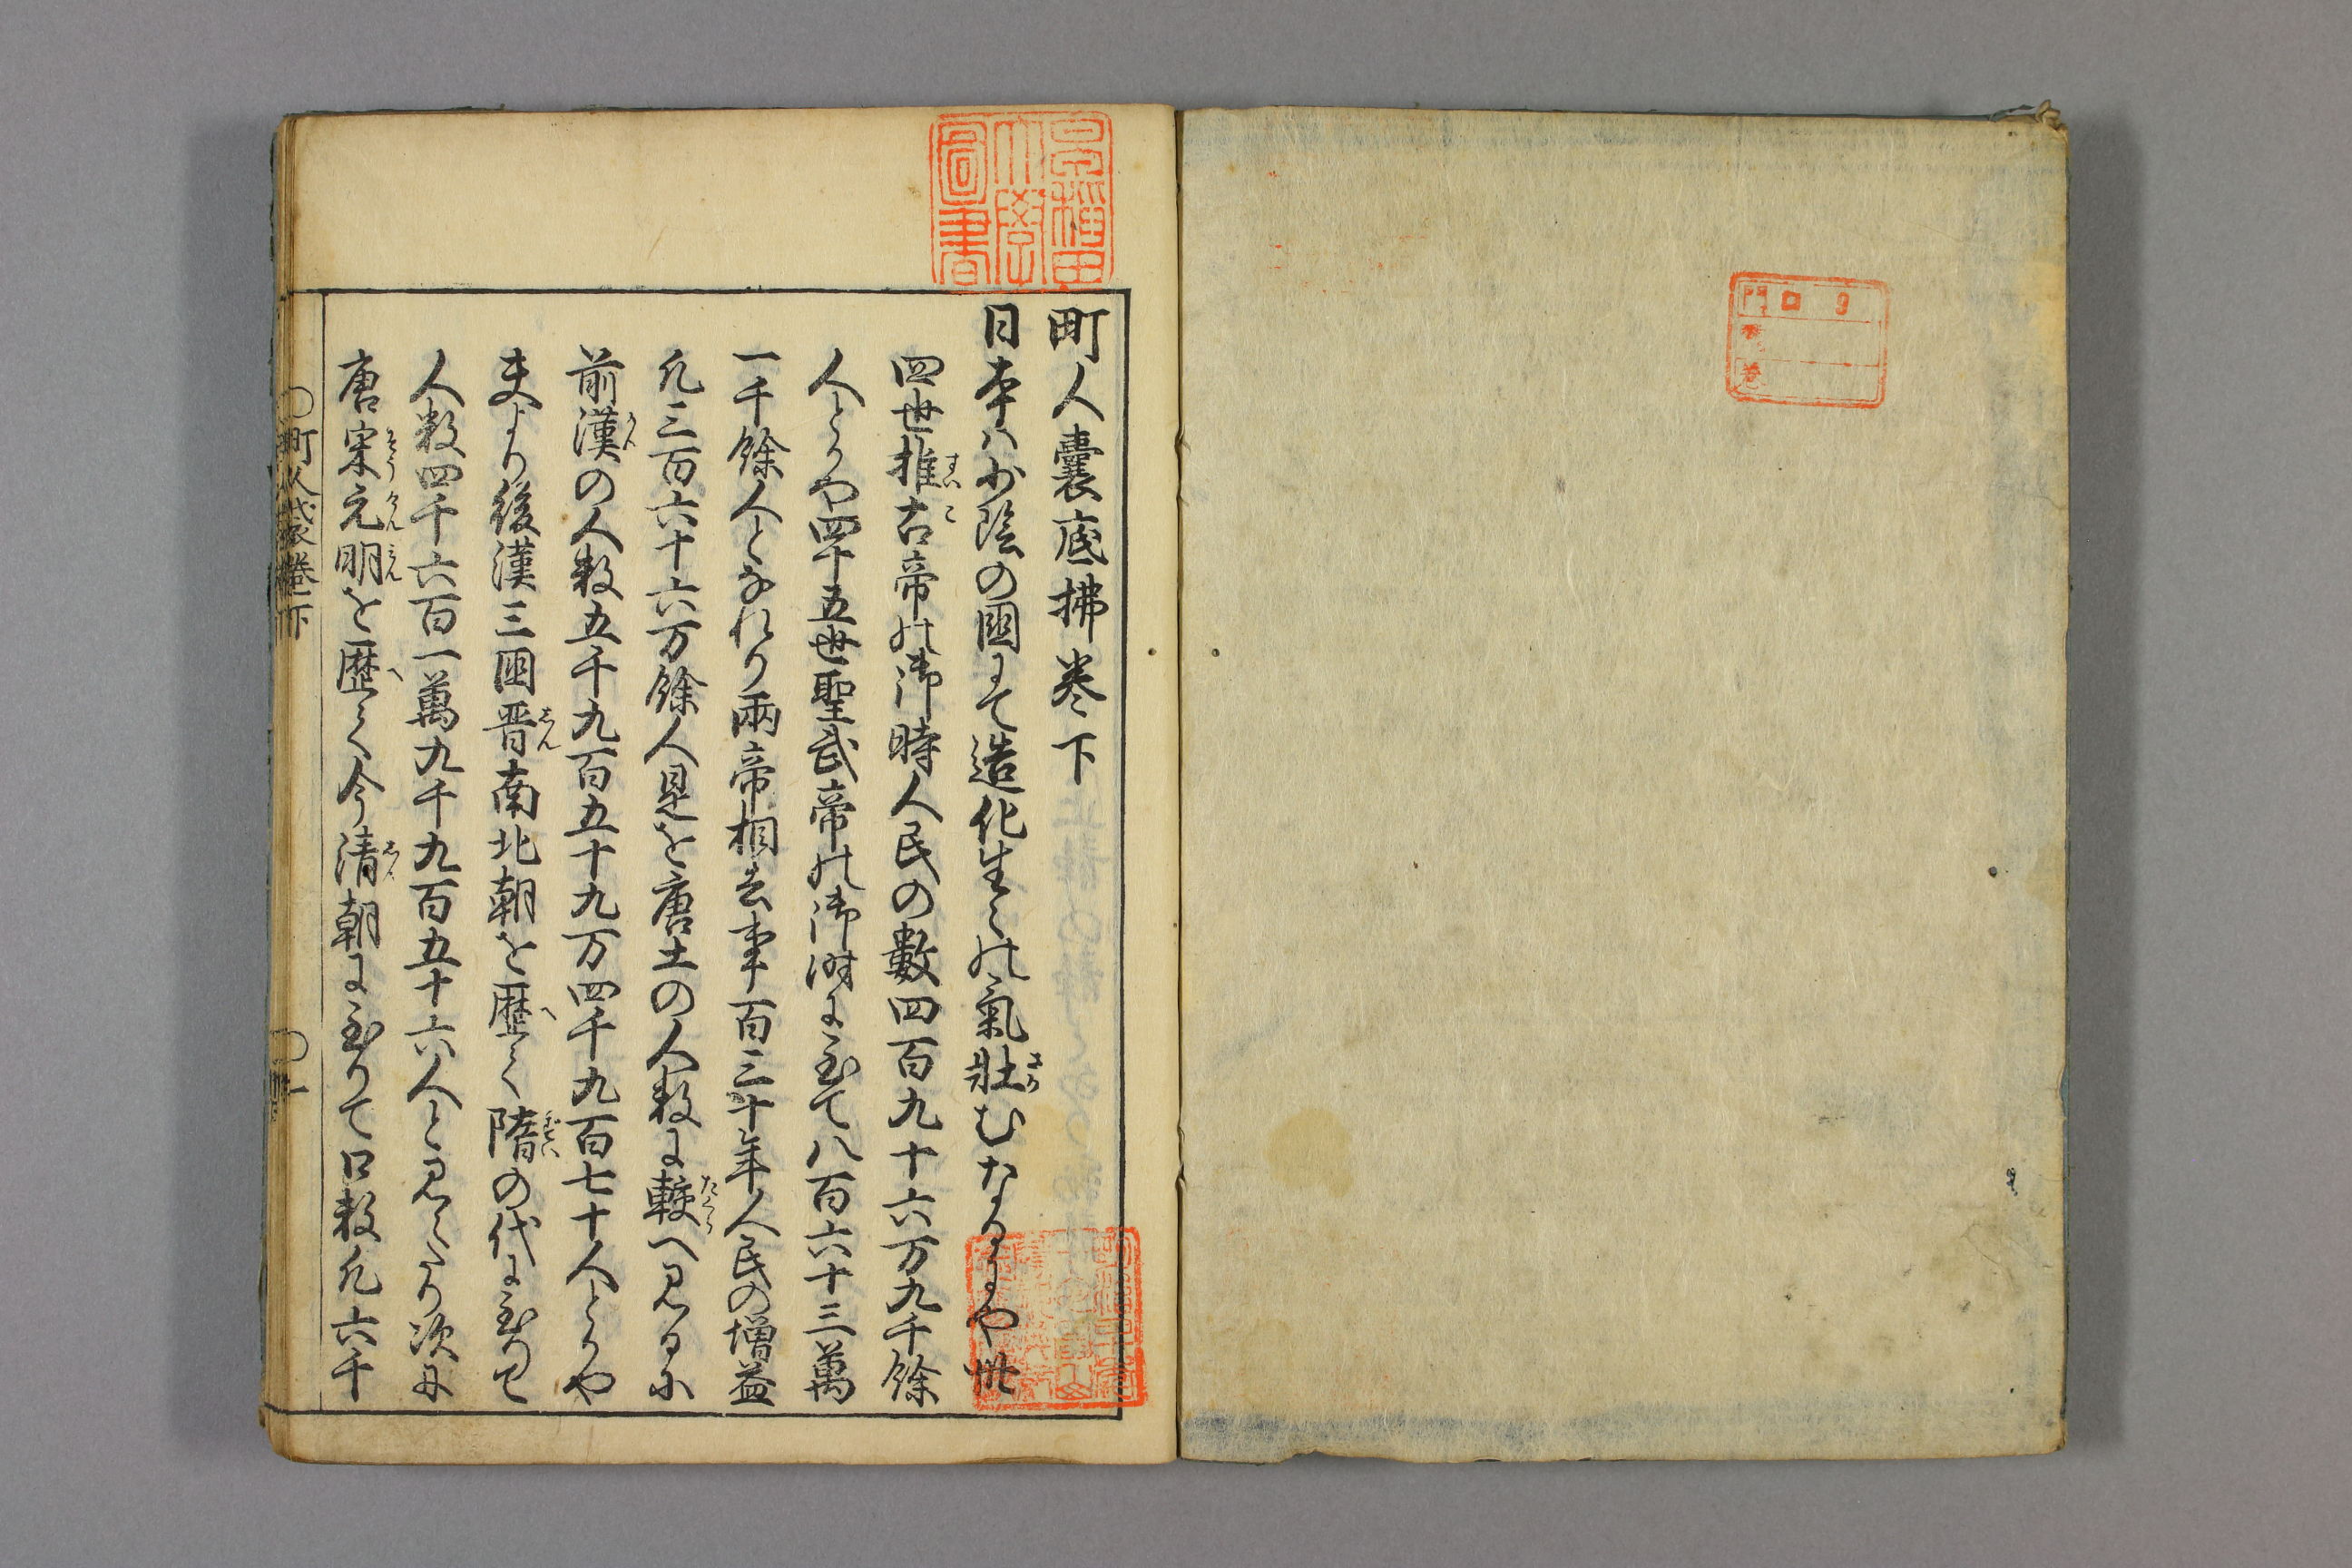 町人囊底拂卷下
日本ハ少陰の國にて造化生々の氣壯むなるにや卅
四世推古帝の御時人民の數四百九十六万九千餘
人とかや四十五世聖武帝の御時に至て八百六十三萬
一千餘人となれり兩帝相去事百三十年人民の増益
凡三百六十六万餘人是を唐土の人数に較へ見るに
前漢の人数五千九百五十九万四千九百七十人とかや
夫より後漢三國晋南北朝を歴て隋の代に至りて
人数四千六百一萬九千九百五十六人と見えたり次に
唐宋元明を歴て今清朝に至りて口数凡六千
町人袋卷下
一
早稲田大學圖書
門 口 9
號
卷